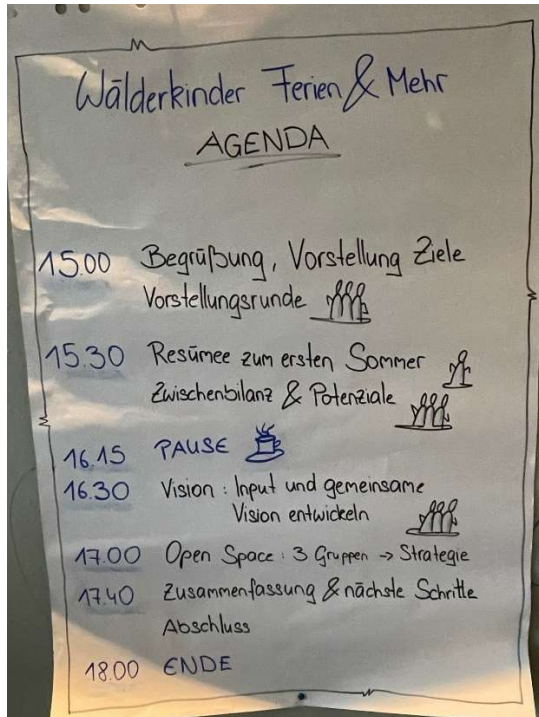 Wälderkinder Ferien & Mehr
AGENDA
15.00 Begrüßung, Vorstellung Ziele
Vorstellungsrunde
15.30 Resümee zum ersten Sommer
Zwischenbilanz & Potenziale
16.15 PAUSE
16.30 Vision : Input und gemeinsame
Vision entwickeln
17.00 Open Space : 3 Gruppen → Strategie
17.40 Zusammenfassung & nächste Schritte
Abschluss
18.00 ENDE